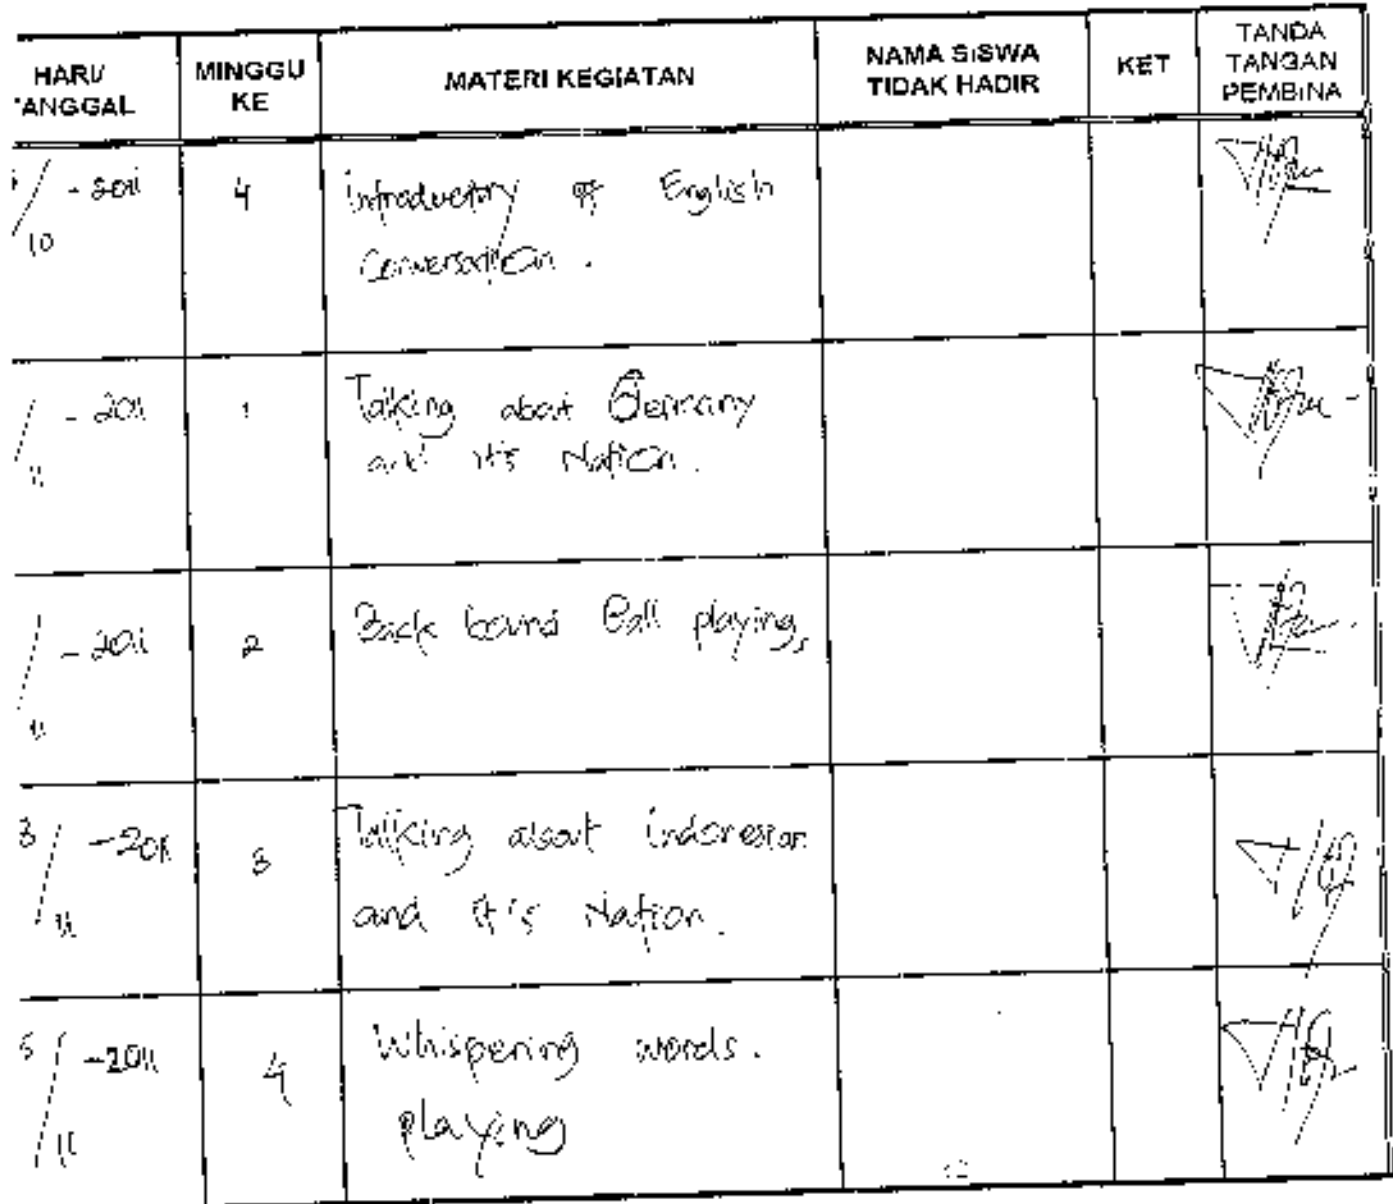 HARI/ MINGGU KE MATERI KEGIATAN NAMA SISWA TIDAK HADIR KET TANDA TANGAN PEMBINA
TANGGAL
/10 - 2011 4 Introductory of English
Conversation.
/11 - 2011 1 Talking about Germany
and it's Nation.
/11 - 2011 2 Back bound Ball playing,
3/11 - 2011 3 Talking about Indonesian
and it's Nation.
/11 - 2011 4 Whispering words.
playing